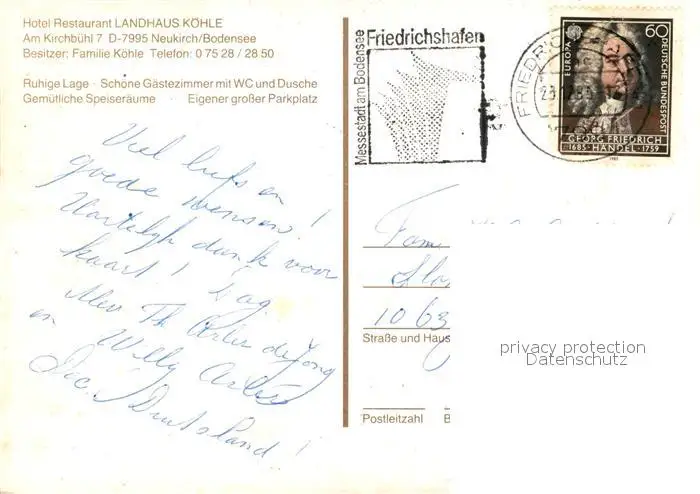 Hotel Restaurant LANDHAUS KÖHLE
Am Kirchbühl 7 D-7995 Neukirch/Bodensee
Besitzer: Familie Köhle Telefon: 0 75 28 / 28 50
Ruhige Lage · Schöne Gästezimmer mit WC und Dusche
Gemütliche Speiseräume · Eigener großer Parkplatz
Messestadt am Bodensee
Friedrichshafen
FRIEDRICH
EUROPA
60
DEUTSCHE BUNDESPOST
GEORG FRIEDRICH
1685 · HÄNDEL · 1759
Veel liefs en
goede wensen!
Hartelijk dank voor
kaart!
Mev Th Arler de Jong
en Willy
Deutschland!
Fam
1063
Straße und Haus
Postleitzahl
privacy protection
Datenschutz